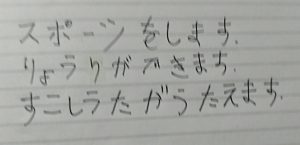 スポーツをします.
りょうりができます.
すこしうたがうたえます.